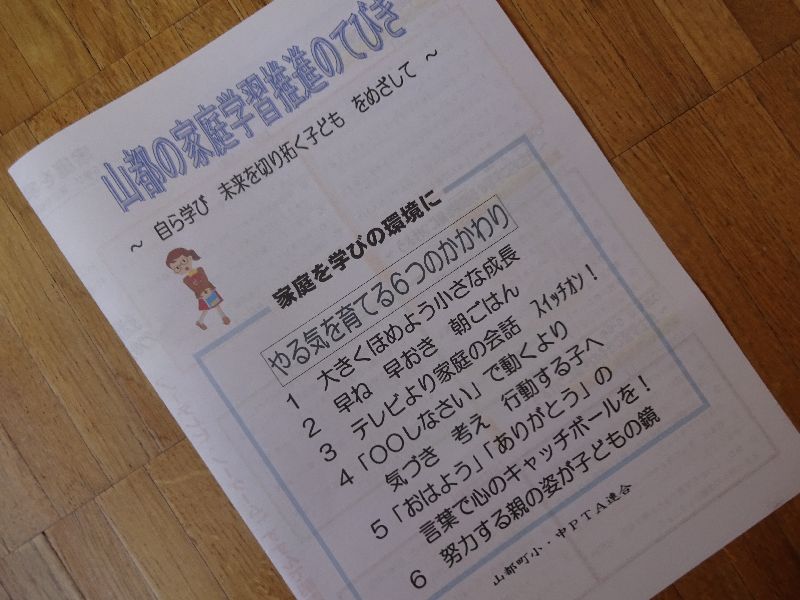 山都の家庭学習推進のてびき
～ 自ら学び 未来を切り拓く子ども をめざして ～
家庭を学びの環境に
やる気を育てる６つのかかわり
１ 大きくほめよう小さな成長
２ 早ね 早おき 朝ごはん
３ テレビより家庭の会話 ｽｲｯﾁｵﾝ！
４「〇〇しなさい」で動くより
気づき 考え 行動する子へ
５「おはよう」「ありがとう」の
言葉で心のキャッチボールを！
６ 努力する親の姿が子どもの鏡
山都町小・中ＰＴＡ連合